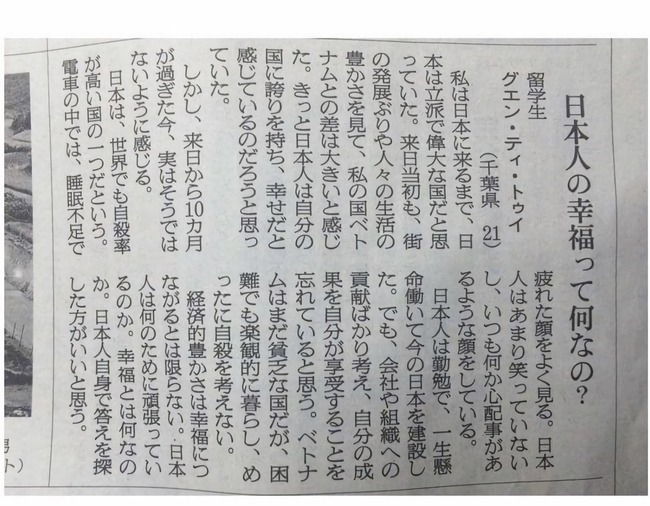 日本人の幸福って何なの?
留学生
グエン・ティ・トゥイ
(千葉県 21)
私は日本に来るまで、日
本は立派で偉大な国だと思
っていた。来日当初も、街
の発展ぶりや人々の生活の
豊かさを見て、私の国ベト
ナムとの差は大きいと感じ
た。きっと日本人は自分の
国に誇りを持ち、幸せだと
感じているのだろうと思っ
ていた。
しかし、来日から10カ月
が過ぎた今、実はそうでは
ないように感じる。
日本は、世界でも自殺率
が高い国の一つだという。
電車の中では、睡眠不足で
疲れた顔をよく見る。日本
人はあまり笑っていない
し、いつも何か心配事があ
るような顔をしている。
日本人は勤勉で、一生懸
命働いて今の日本を建設し
た。でも、会社や組織への
貢献ばかり考え、自分の成
果を自分が享受することを
忘れていると思う。ベトナ
ムはまだ貧乏な国だが、困
難でも楽観的に暮らし、め
ったに自殺を考えない。
経済的豊かさは幸福につ
ながるとは限らない。日本
人は何のために頑張ってい
るのか。幸福とは何なの
か。日本人自身で答えを探
した方がいいと思う。
男
ト)